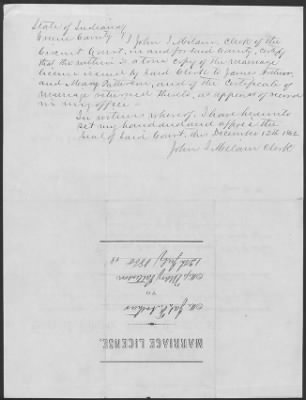 State of Indiana
Greene County
I John I Milam, clerk of the
Circuit Court, in and for said County, certify
that the within is a true copy of the marriage
license issued by said Clerk to James
and Mary Patterson, and of the Certificate of
marriage returned thereto, as appears of record
in my office.
In witness whereof, I have hereunto
set my hand and affix the
Seal of said Court, this December 12th
John I Milam Clerk
MARRIAGE LICENSE.
TO
Mary Patterson
July